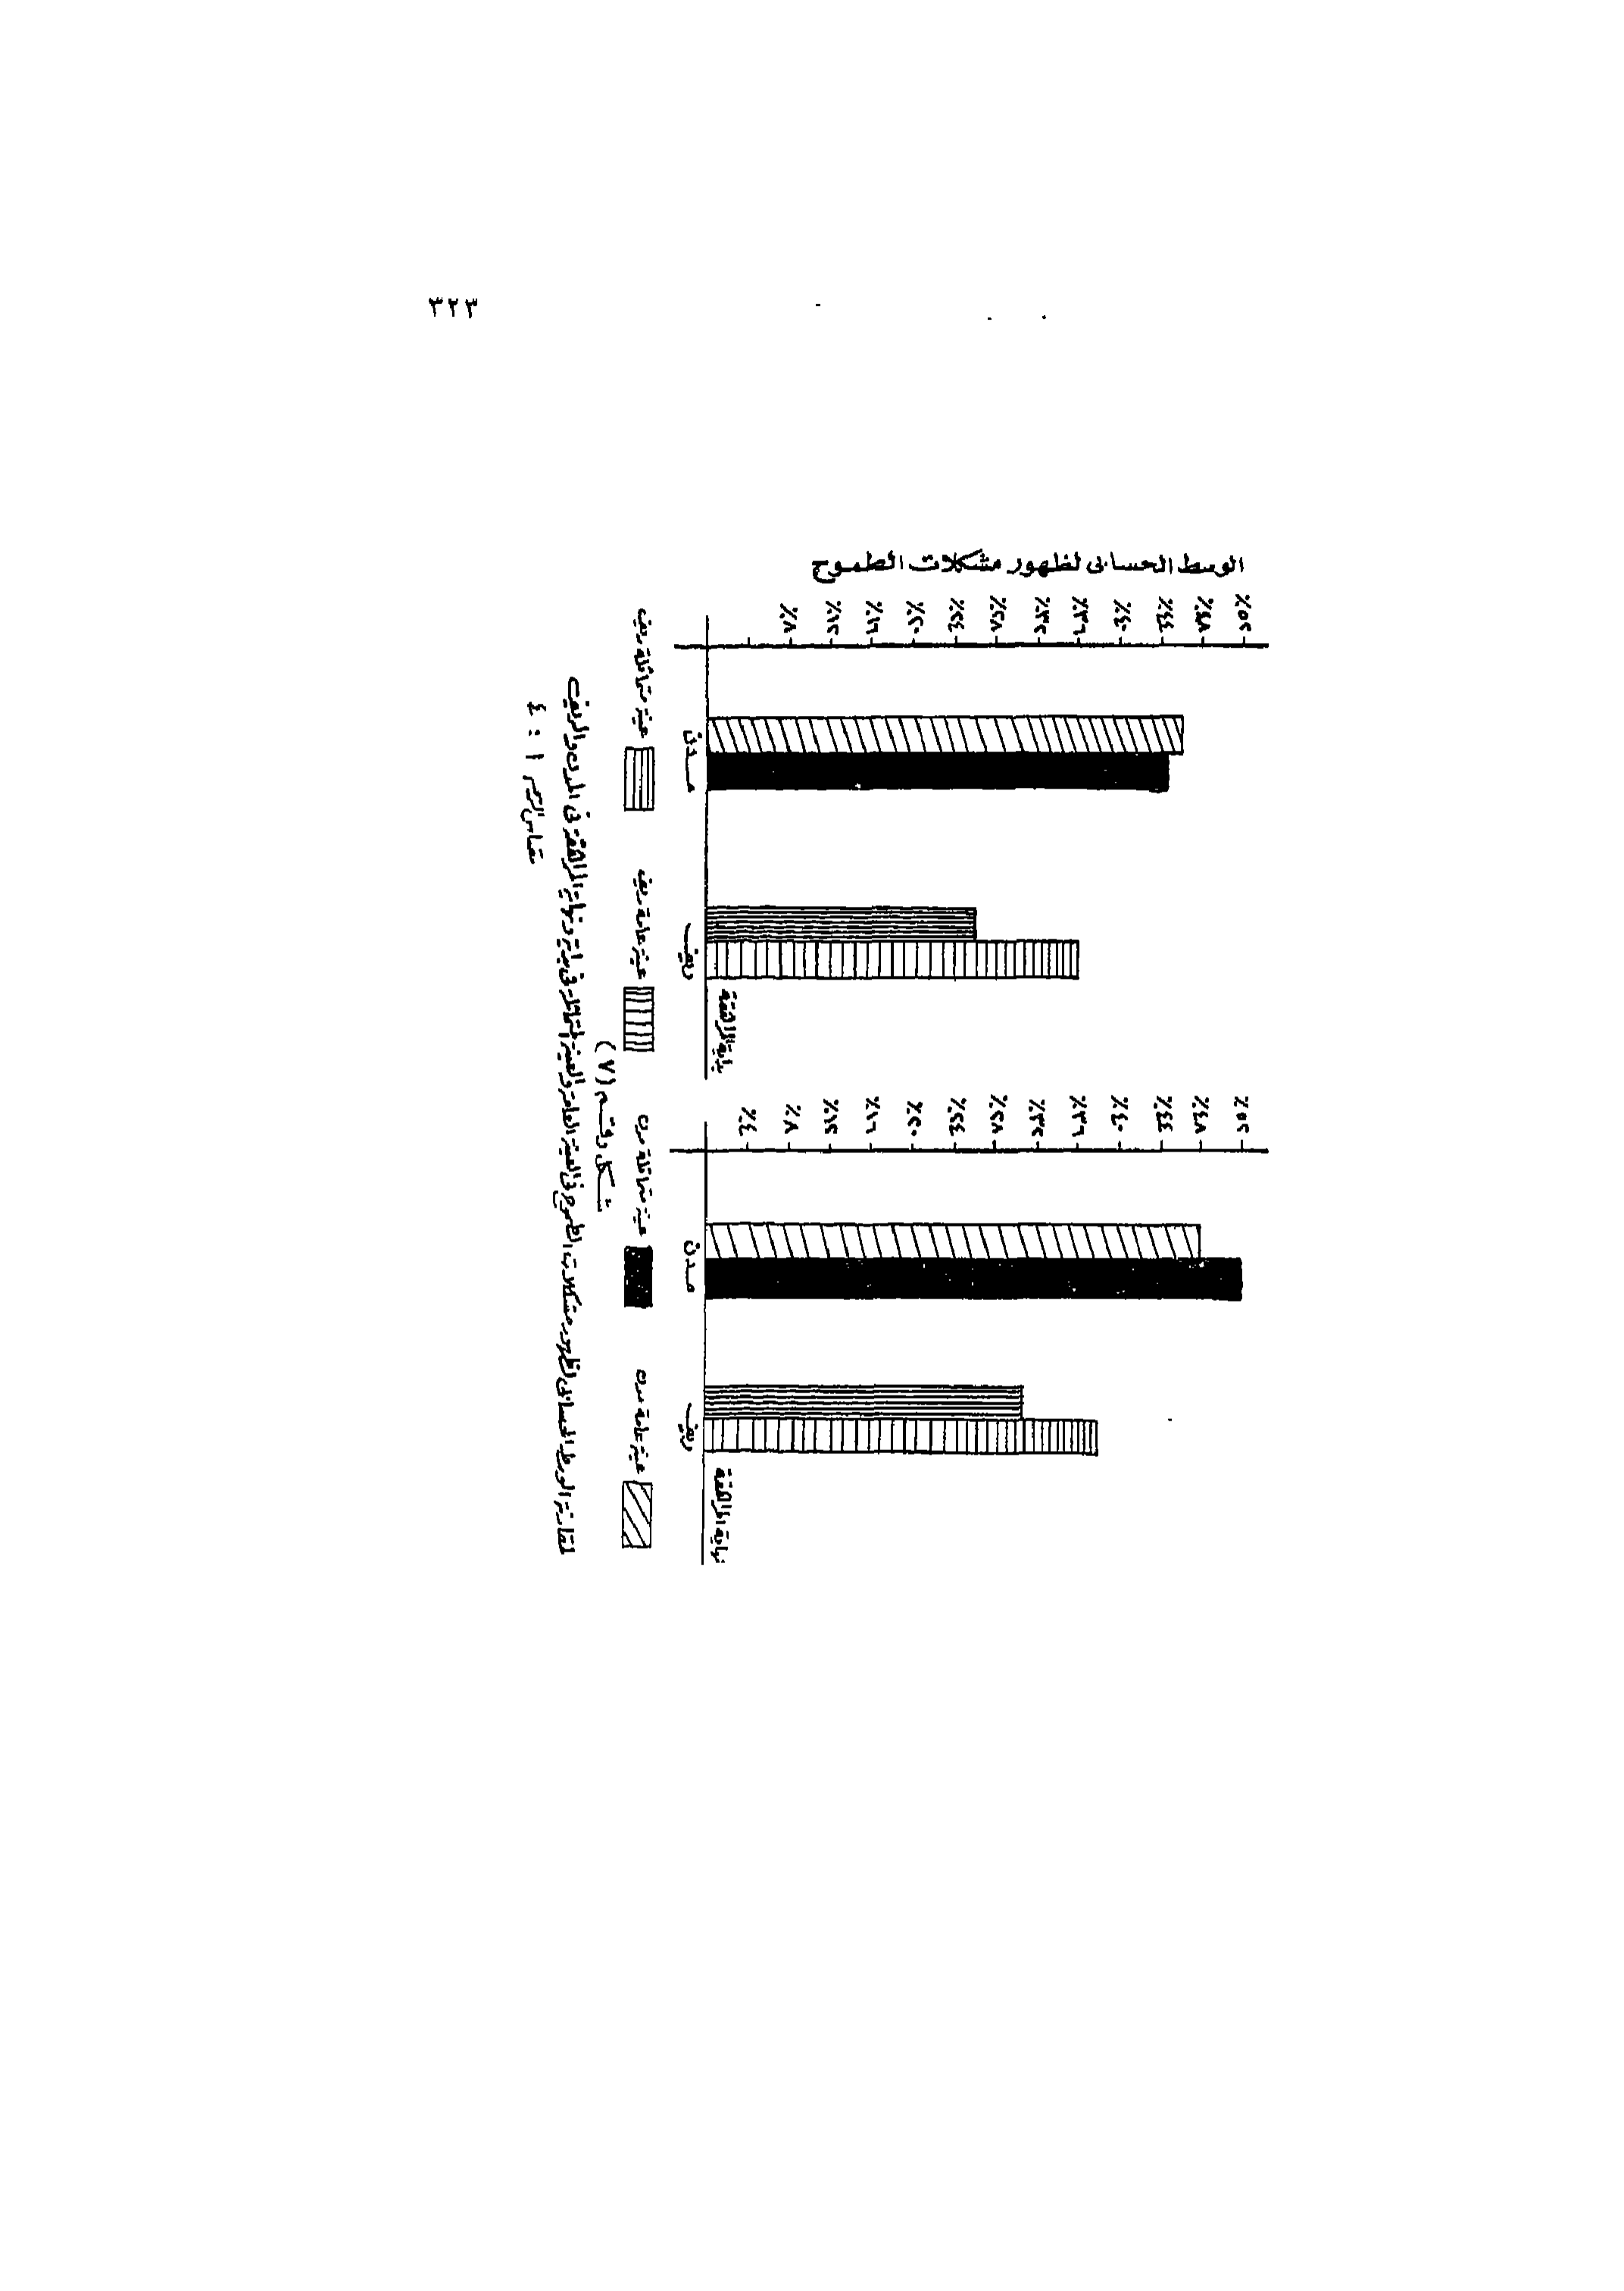 ٣٢٣
الوسط الحسابى لظهور مشكلات الطموح
٪٥٢
٪٤٨
٪٤٤
٪٤٠
٪٣٦
٪٣٢
٪٢٨
٪٢٤
٪٢٠
٪١٦
٪١٢
٪٨
مدن
ريف
بداية المراهقة
٪٥٢
٪٤٨
٪٤٤
٪٤٠
٪٣٦
٪٣٢
٪٢٨
٪٢٤
٪٢٠
٪١٦
٪١٢
٪٨
٪٤
مدن
ريف
نهاية المراهقة
عينة متماثلة ريف
عينة عامة ريف
عينة متماثلة مدن
عينة عامة مدن
شكل رقم (٧)
مقارنة الوسط الحسابى لظهور مشكلات الطموح فى العينة العامة والعينة المتماثلة فى بداية ونهاية المراهقة فى المدن والريف
مقياس الرسم ١ : ٤